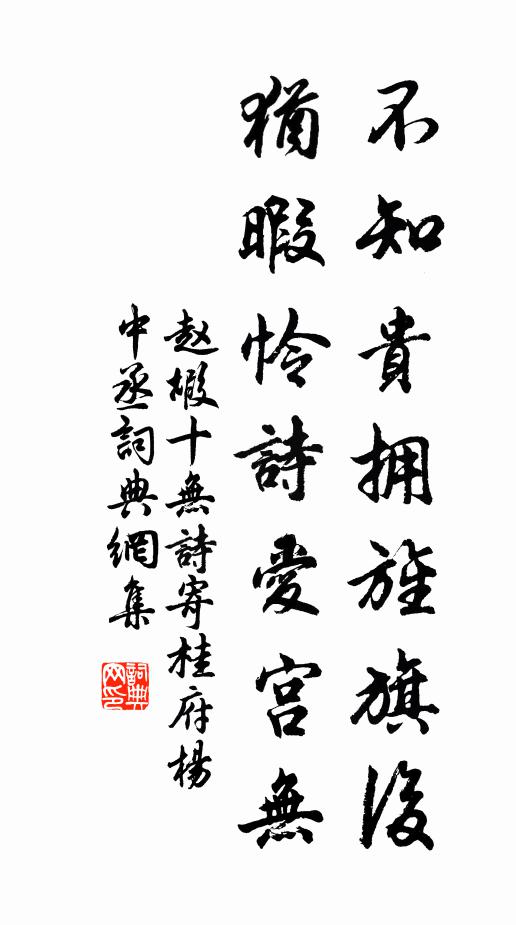 不知貴拥旌旗後
猶暇怜詩愛宮無
赵嘏十無詩寄桂府楊
中丞詞典網集
詞典网印